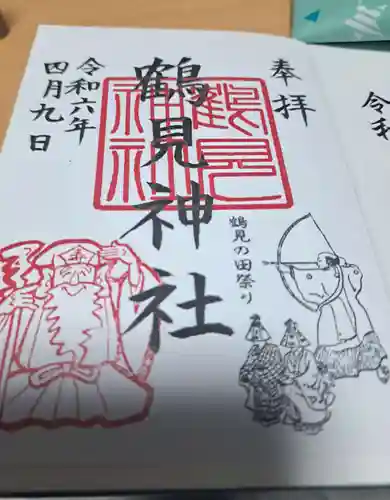 奉拝
鶴見神社
鶴見
神社
鶴見の田祭り
令和六年
四月九日
令和